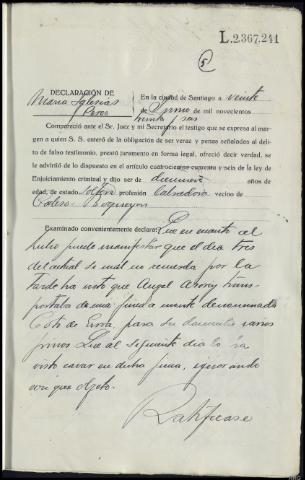 L.2.367.241
5
DECLARACIÓN DE
María Iglesias
En la ciudad de Santiago a veinte
de Junio de mil novecientos
treinta y seis
Compareció ante el Sr. Juez y mi Secretario el testigo que se expresa al mar-
gen a quien S. S. enteró de la obligación de ser veraz y penas señaladas al deli-
to de falso testimonio, prestó juramento en forma legal, ofreció decir verdad, se
le advirtió de lo dispuesto en el artículo cuatrocientos cuarenta y seis de la ley de
Enjuiciamiento criminal y dijo ser de años de
edad, de estado soltera profesión Labradora vecino de
Boqueijón
Examinado convenientemente declaró: Que en cuanto al
hecho puede manifestar que el día tres
del actual se mal no recuerda por la
tarde ha visto que Angel trans-
portaba de una finca a monte denominada
Coto de para su domicilio varios
pinos. Que al siguiente día lo ha
visto cavar en dicha finca, ignorando
con que objeto.
Ratificase